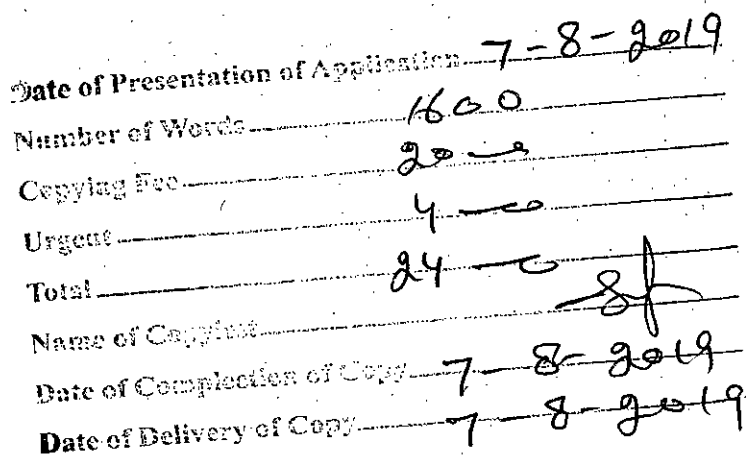 Date of Presentation of Application 7-8-2019
Number of Words 1600
Copying Fee 20-0
Urgent 4-0
Total 24-0
Name of Copyiest
Date of Complection of Copy 7-8-2019
Date of Delivery of Copy 7-8-2019